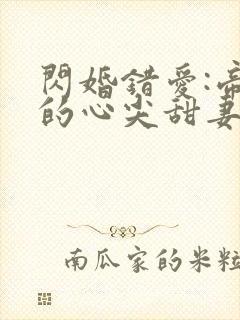 閃婚錯愛:帝
的心尖甜妻
南瓜家的米粒